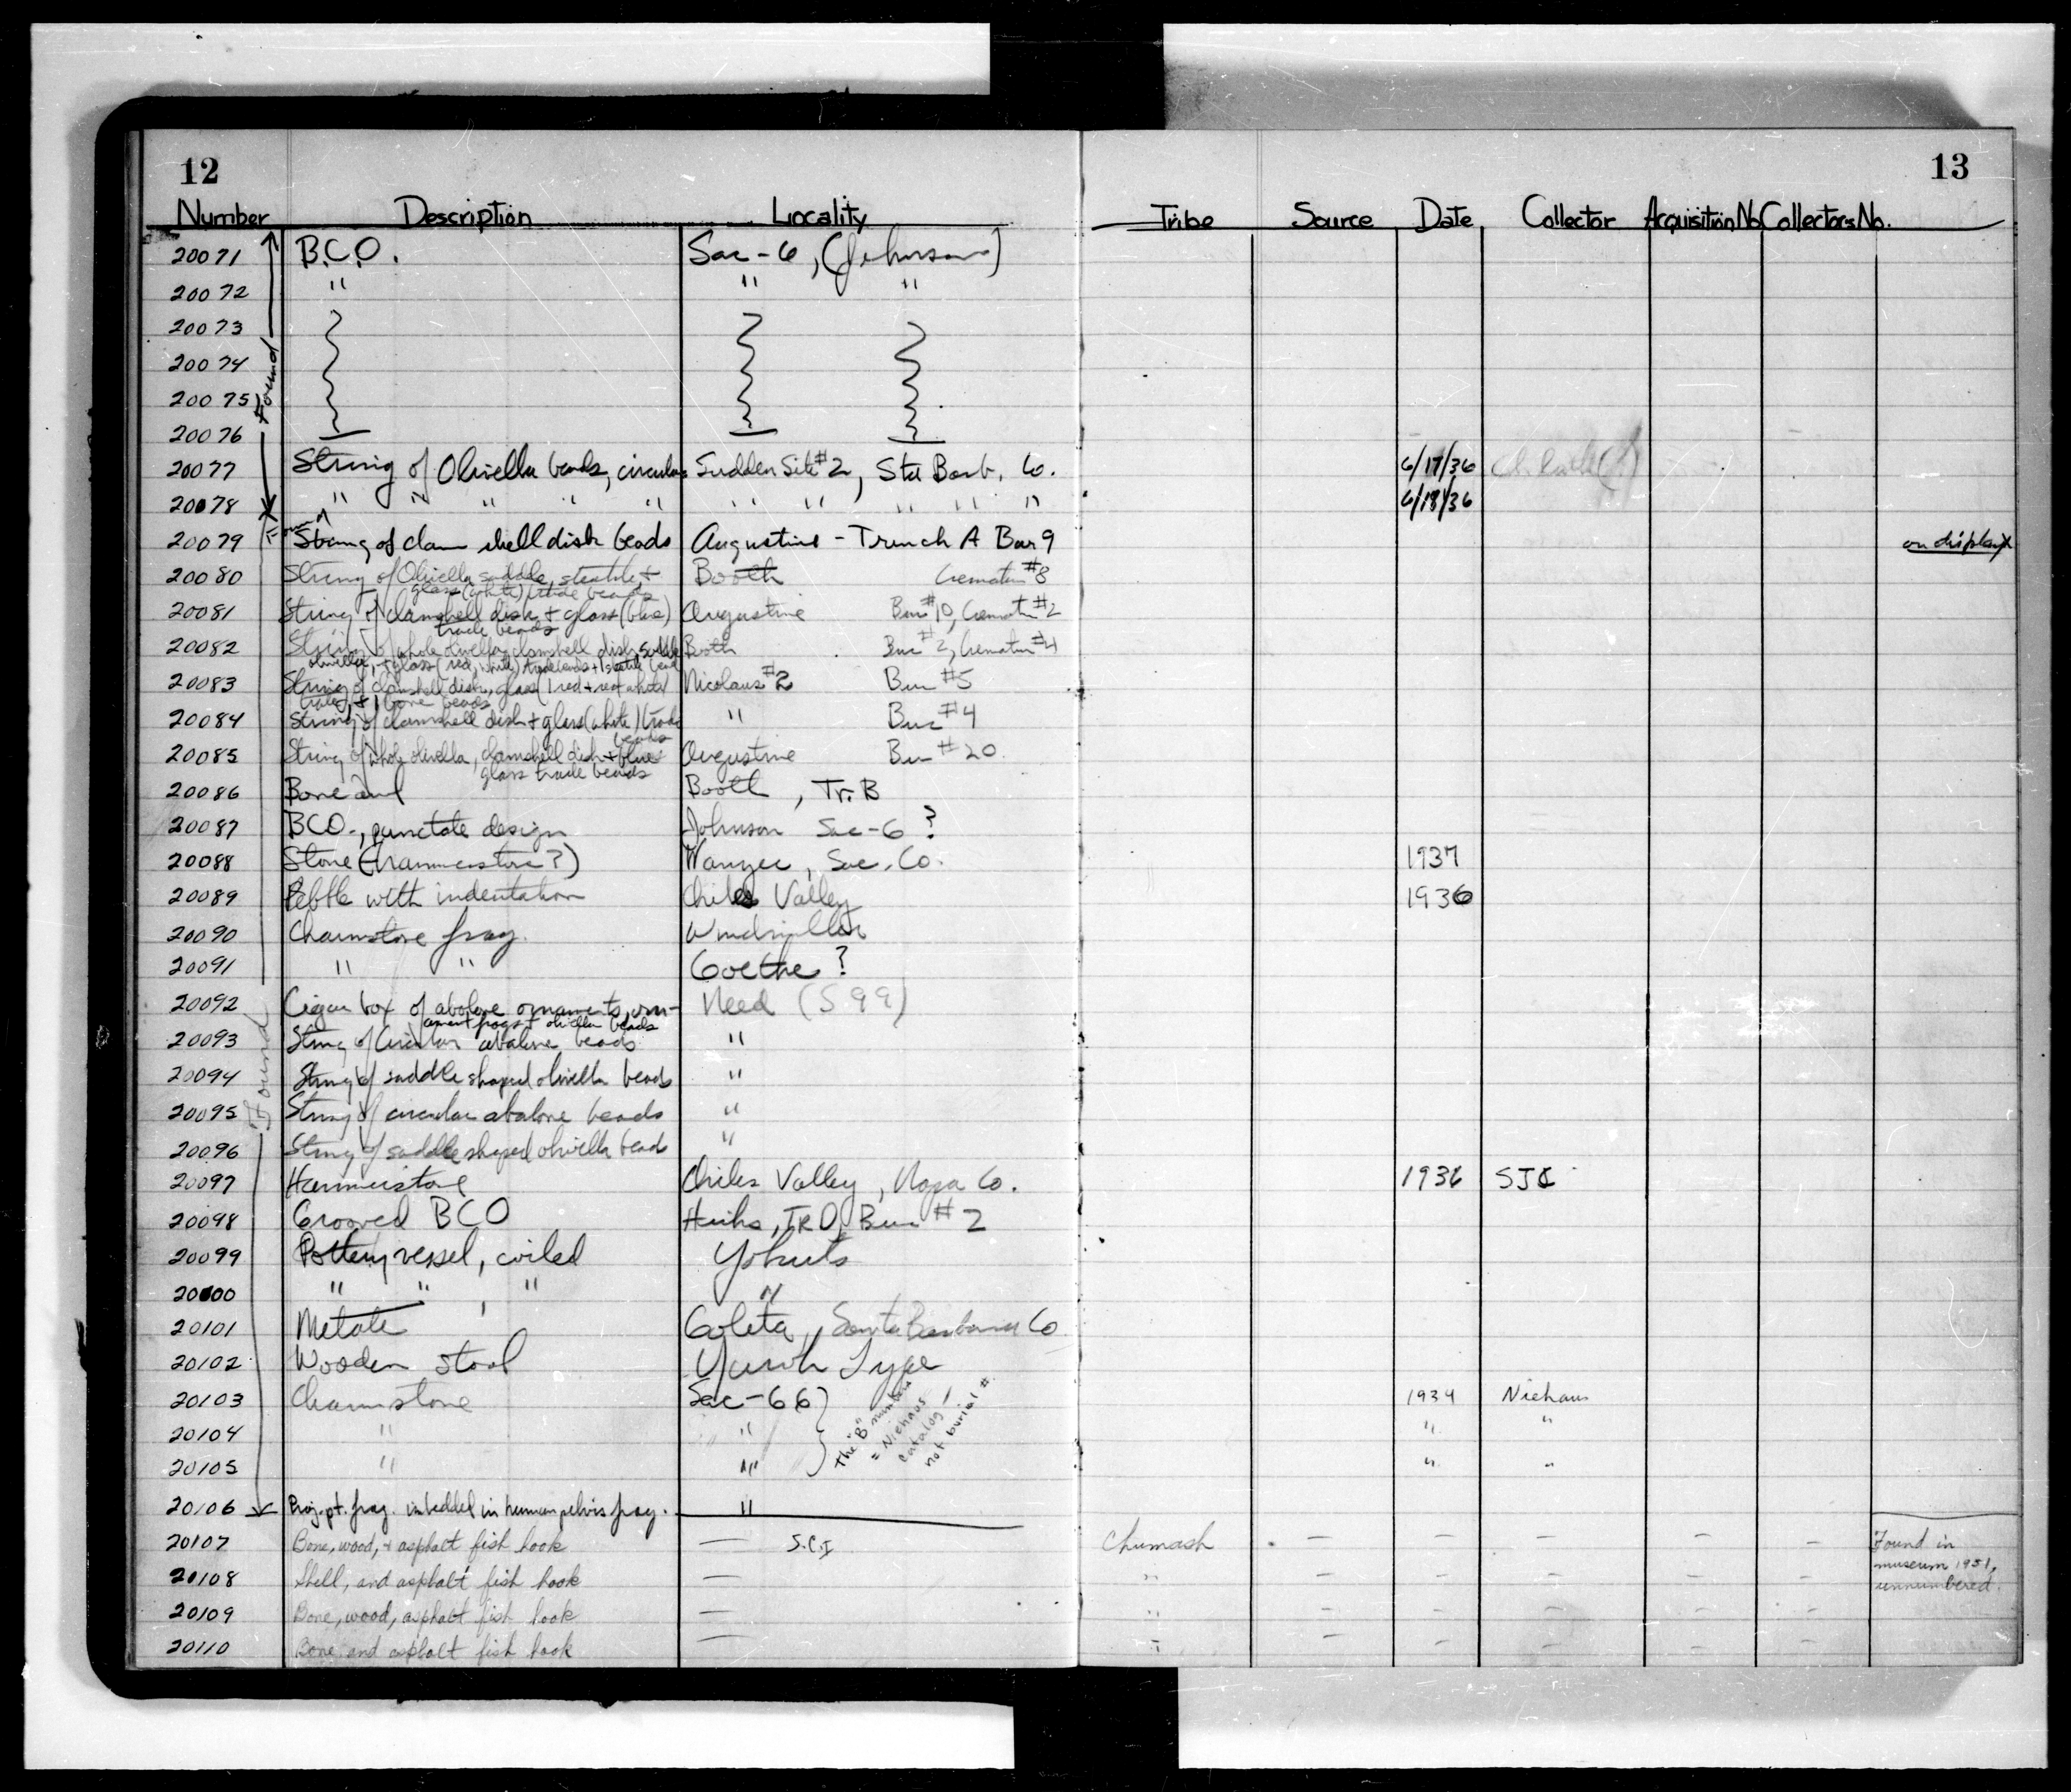 12
13
Number Description Locality Tribe Source Date Collector Acquisition No. Collectors No.
Found
20071 B.C.O. Sac-6, (Johnson)
20072 " " "
20073
20074
20075
20076
20077 String of Olivella beads, circular Sudden Site #2, Sta Barb. Co. 6/17/36
20078 " " " " " " " " " " 6/18/36
20079 String of clam shell disk beads Augustine - Trench A Bur 9 on display
20080 String of Olivella saddle, steatite, + Booth Cremation #8
glass (white) trade beads
20081 String of clamshell disk + glass (blue) Augustine Bur #10, Cremation #2
trade beads
20082 String of whole olivella, clamshell disk, saddle Booth Bur #2, Cremation #4
olivella, + glass (red, white) trade beads + 1 steatite bead
20083 String of clamshell disk, glass (1 red + rest white) Nicolaus #2 Bur #5
trade, + 1 bone beads
20084 String of clamshell disk + glass (white) trade " Bur #4
beads
20085 String of whole olivella, clamshell disk + blue Augustine Bur #20
glass trade beads
20086 Bone awl Booth, Tr. B
20087 BCO., punctate design Johnson Sac-6 ?
20088 Stone (Hammerstone?) Wamser, Sac. Co. 1937
20089 Pebble with indentation Chiles Valley 1936
20090 Charmstone frag. Windmiller
20091 " " Goethe ?
Found
20092 Cigar box of abalone ornaments, orn- Need (S 99)
ament frags + olivella beads
20093 String of Circular abalone beads "
20094 String of saddle shaped olivella beads "
20095 String of circular abalone beads "
20096 String of saddle shaped olivella beads "
20097 Hammerstone Chiles Valley, Napa Co. 1936
20098 Grooved BCO Hicks, TR D, Bur #2
20099 Pottery vessel, coiled Yokuts
20000 " " " "
20101 Metate Goleta, Santa Barbara Co
20102 Wooden stool Yurok Type
20103 Charmstone Sac-66 1934 Niehaus
20104 " " " "
20105 " " " "
The "B" numbers
= Niehaus
catalog -
not burial #.
20106 Proj. pt. frag. imbedded in human pelvis frag. "
20107 Bone, wood, + asphalt fish hook — S.C.I Chumash — — — — — Found in
museum 1951,
unnumbered.
20108 Shell, and asphalt fish hook — " — — — — —
20109 Bone, wood, asphalt fish hook — " — — — — —
20110 Bone and asphalt fish hook — " — — — — —